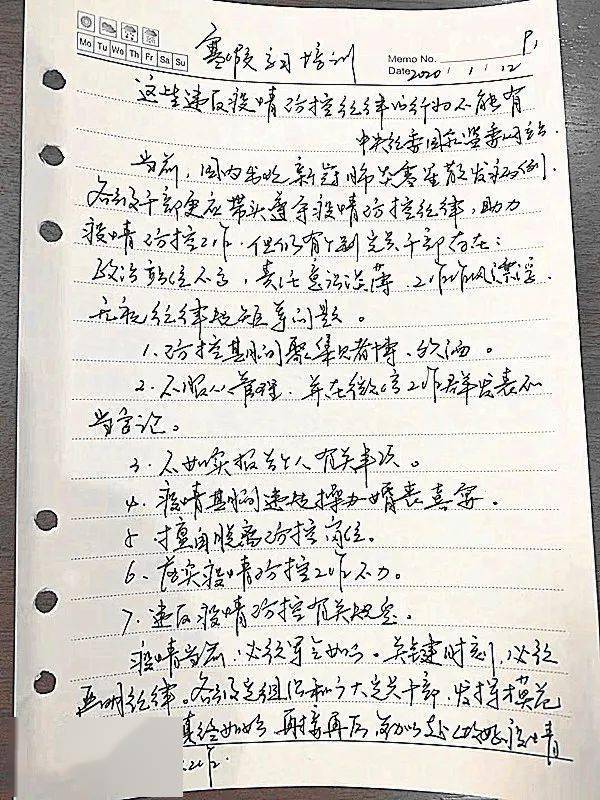 寒假学习培训
P1
Mo Tu We Th Fr Sa Su
Memo No.
Date 2020 / 1 / 12
这些违反疫情防控纪律的行为不能有
中央纪委国家监委网站
当前，国内出现新冠肺炎零星散发病例.
各级干部更应带头遵守疫情防控纪律，助力
疫情防控工作，但仍有个别党员干部存在：
政治站位不高，责任意识淡薄，工作作风漂浮，
无视纪律规矩等问题。
1、防控期间聚集赌博、酗酒。
2、不服从管理，并在微信工作群发表不
当言论。
3、不如实报告个人有关事项。
4、疫情期间违规操办婚丧喜宴。
5、擅自脱离防控岗位。
6、落实疫情防控工作不力。
7、违反疫情防控有关规定。
疫情当前，必须军令如山。关键时刻，必须
严明纪律。各级党组织和广大党员干部，发挥模范
慎终如始 再接再厉 疫情
工作.